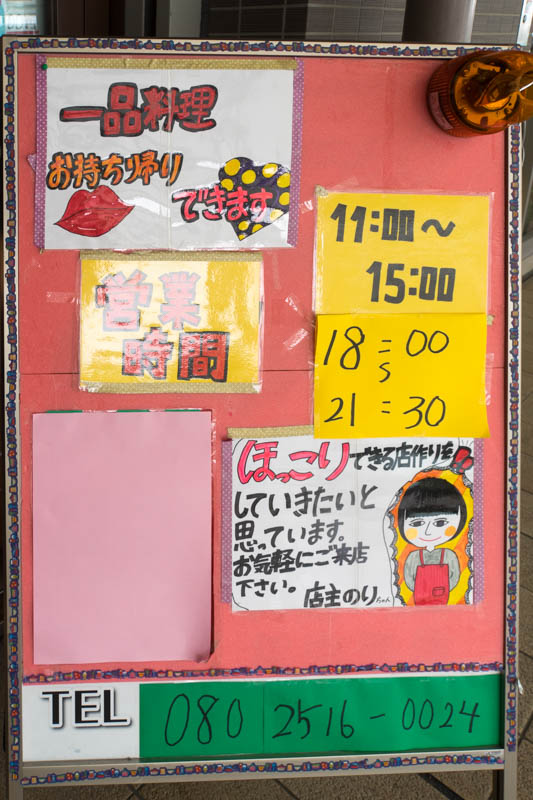 一品料理
お持ち帰り
できます
営業
時間
11:00～
15:00
18:00
～
21:30
ほっこりできる店作りを
していきたいと
思っています。
お気軽にご来店
下さい。 店主のりちゃん
TEL 080 2516-0024